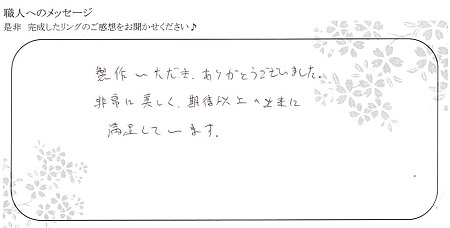 職人へのメッセージ
是非 完成したリングのご感想をお聞かせください♪
製作いただき、ありがとうございました。
非常に美しく、期待以上の出来に
満足しています。